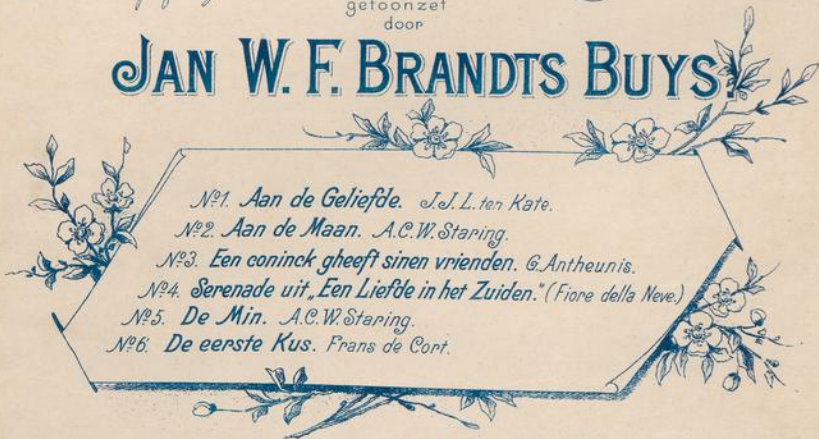 getoonzet
door
JAN W. F. BRANDTS BUYS.
Nº1. Aan de Geliefde. J.J.L. ten Kate.
Nº2. Aan de Maan. A.C.W. Staring.
Nº3. Een coninck gheeft sinen vrienden. G. Antheunis.
Nº4. Serenade uit „Een Liefde in het Zuiden." (Fiore della Neve.)
Nº5. De Min. A.C.W. Staring.
Nº6. De eerste Kus. Frans de Cort.